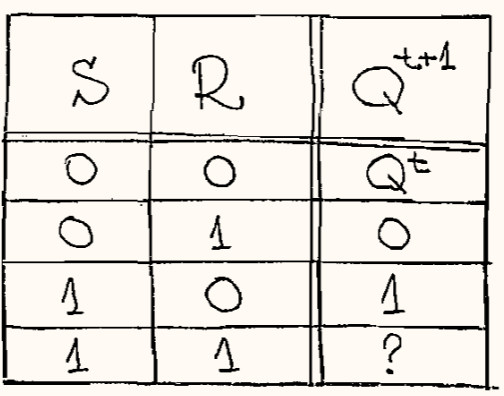 S R Q^t+1
0 0 Q^t
0 1 0
1 0 1
1 1 ?